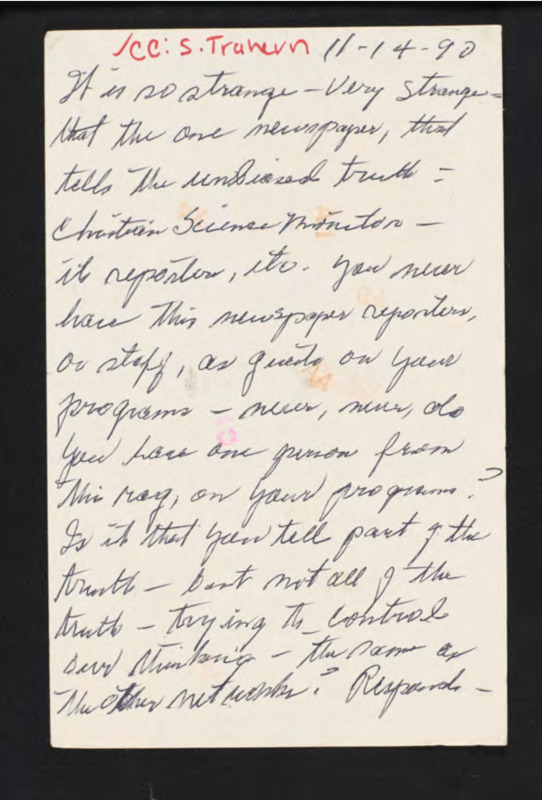 ✓CC: S. Trahern 11-14-90
It is so strange - Very strange -
that the one newspaper, that
tells the unbiased truth -
Christian Science Monitor -
its reporters, etc. You never
have this newspaper reporters,
or staff, as guests on your
programs - never, never, do
you have one person from
this rag, on your programs?
Is it that you tell part of the
truth - but not all of the
truth - trying to control
our thinking - the same as
the other networks? Respond -